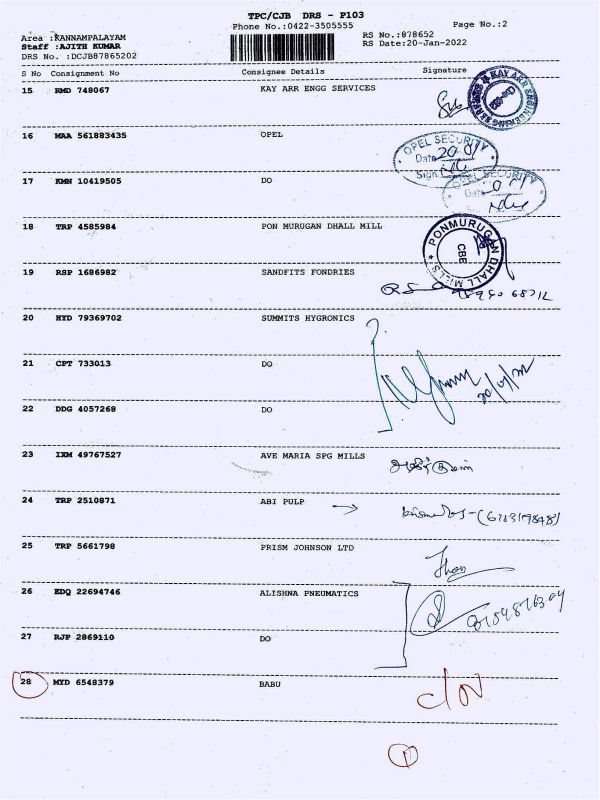 TPC/CJB DRS - P103
Phone No.:0422-3505555
Page No.:2
Area :KANNAMPALAYAM
RS No.:878652
Staff :AJITH KUMAR
RS Date:20-Jan-2022
DRS No. :DCJB87865202
S No Consignment No Consignee Details Signature
15 RMD 748067 KAY ARR ENGG SERVICES
KAY ARR ENGINEERING SERVICES
16 MAA 561883435 OPEL
OPEL SECURITY
Date
Sign
17 KMN 10419505 DO
OPEL SECURITY
Date
18 TRP 4585984 PON MURUGAN DHALL MILL
PONMURUGAN DHALL MILLS
CBE
19 RSP 1686982 SANDFITS FONDRIES
20 HYD 79369702 SUMMITS HYGRONICS
21 CPT 733013 DO
22 DDG 4057268 DO
23 IXM 49767527 AVE MARIA SPG MILLS
24 TRP 2510871 ABI PULP
25 TRP 5661798 PRISM JOHNSON LTD
26 EDQ 22694746 ALISHNA PNEUMATICS
27 RJP 2869110 DO
28 MYD 6548379 BABU
1